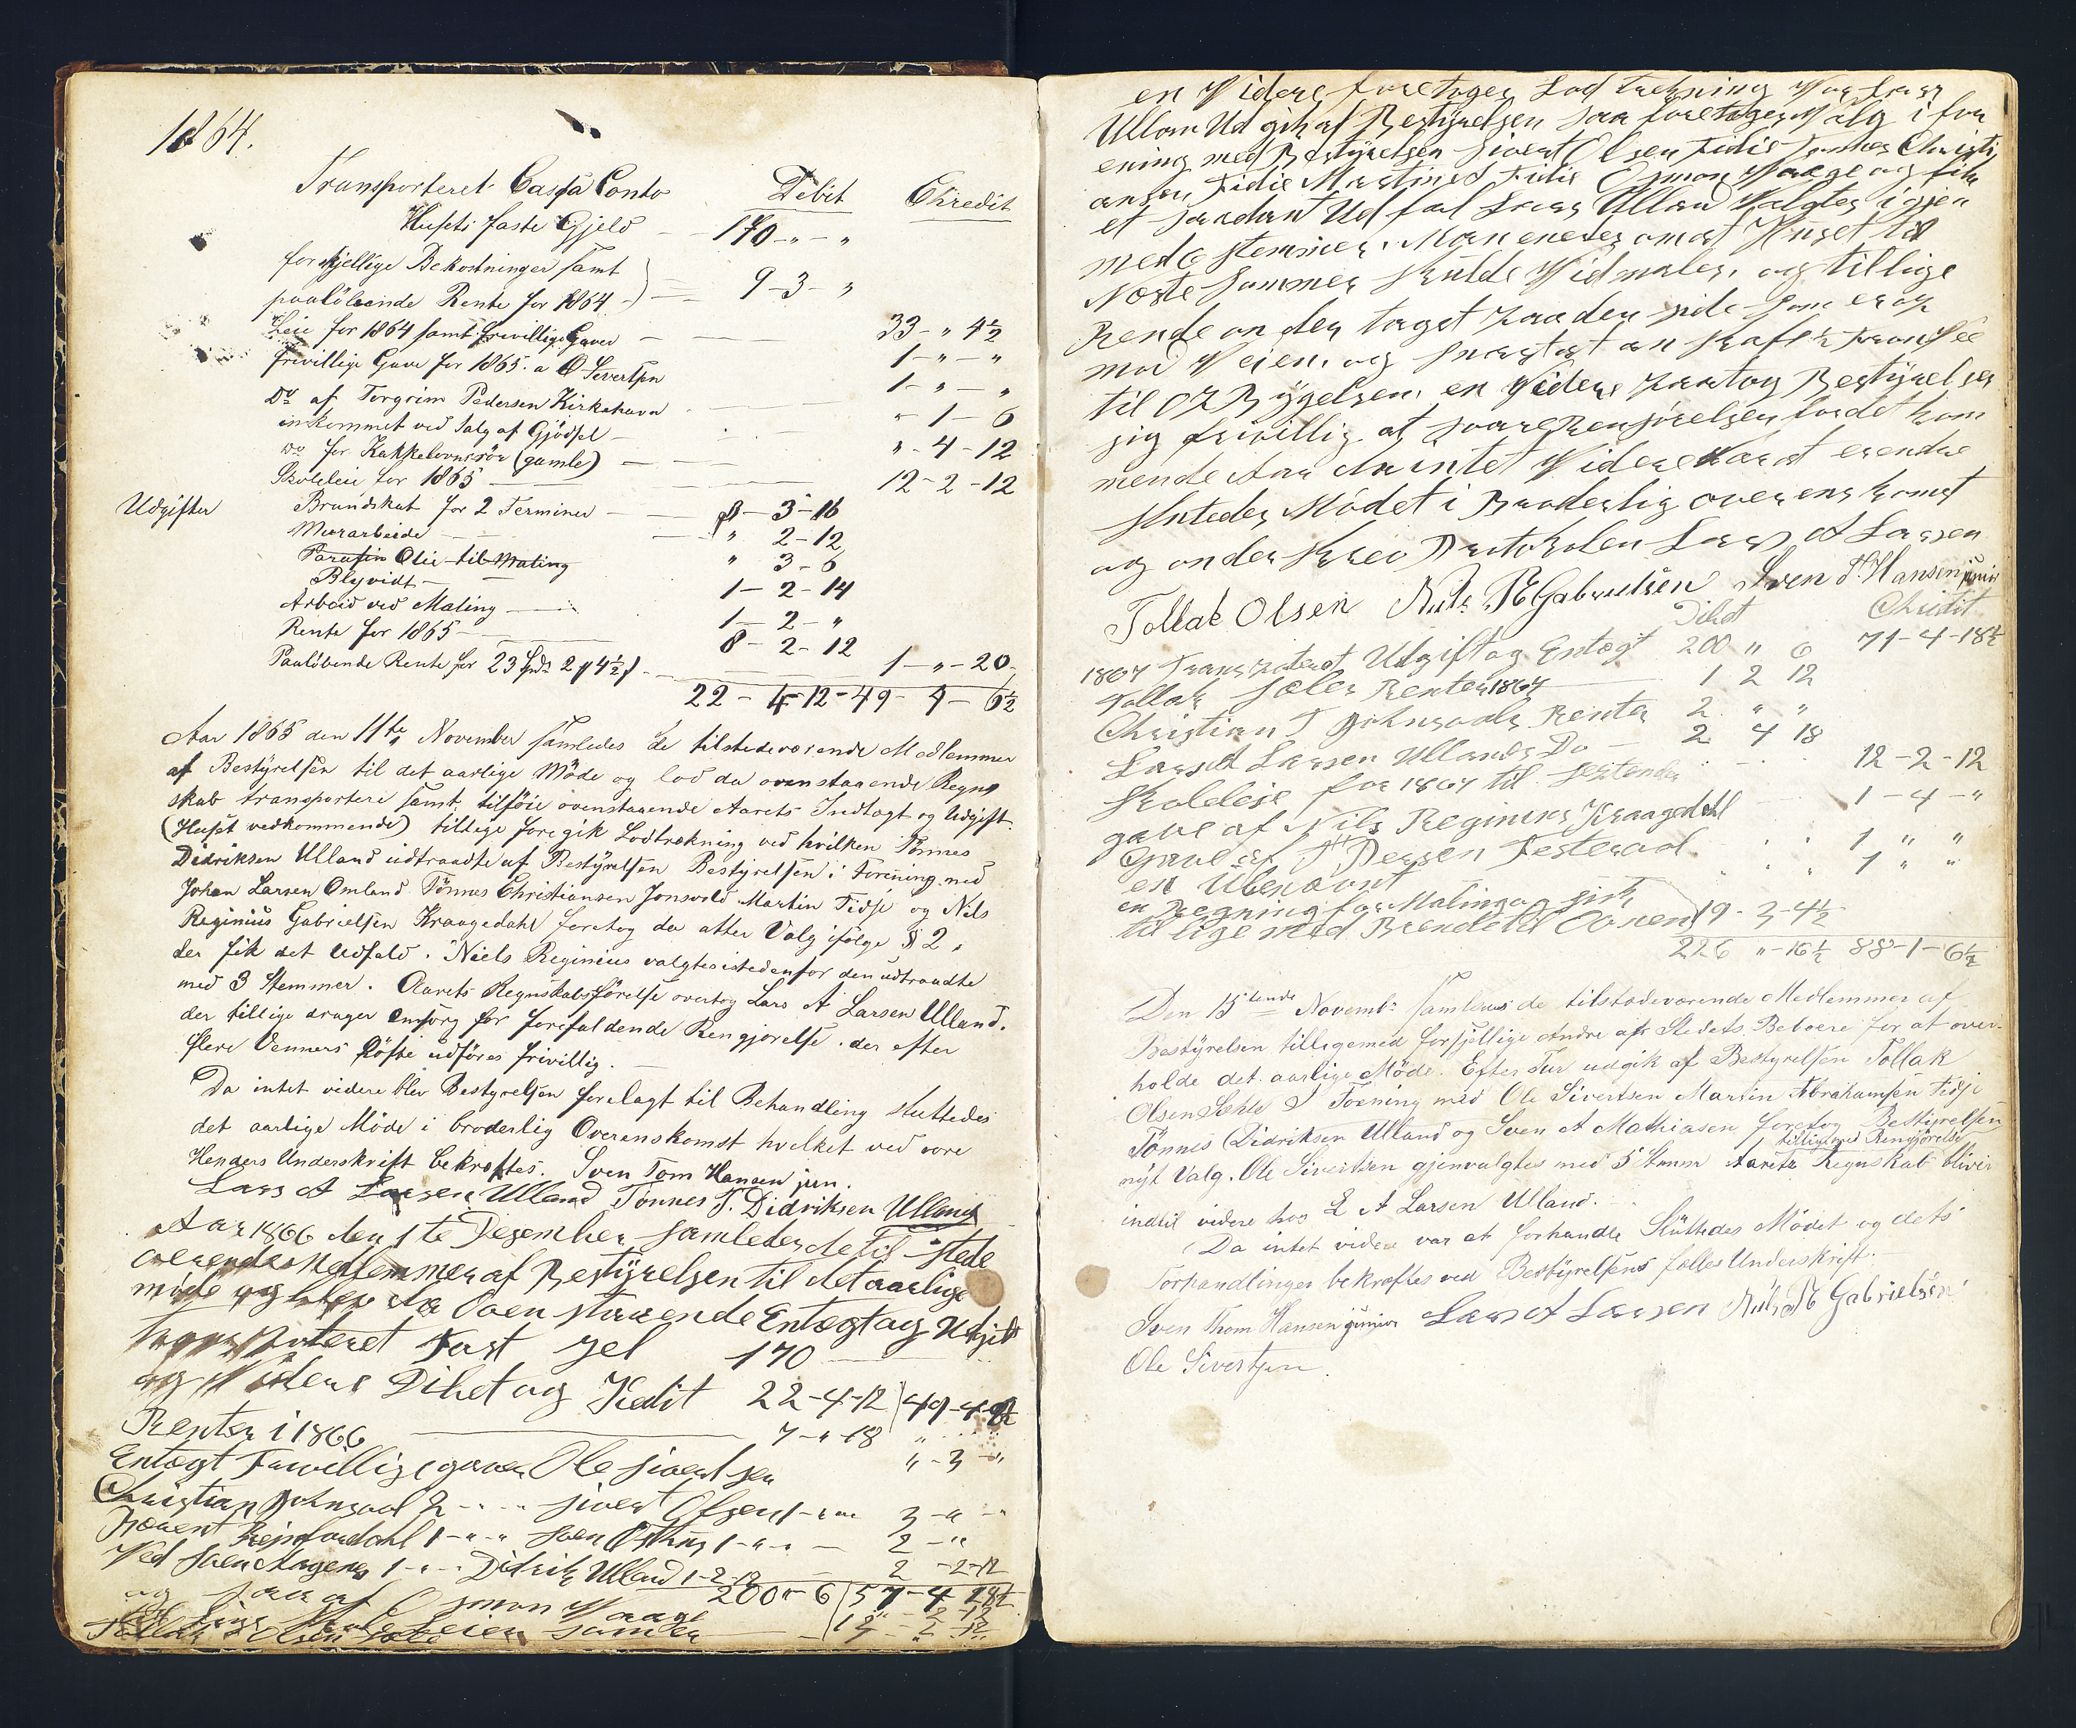 1864.
Transporteret Cassa Conto Debit Chredit
Husets faste Gjeld — 170 - „ - „
forskjellige Bekostninger samt
paaløbende Rente for 1864 — 9 - 3 - „
Leie for 1864 samt frivillige Gaver — 33 - „ 4½
frivillige Gave for 1865. a O Sivertsen 1 - „ - „
Do af Torgrim Pedersen Kirkehavn 1 - „ - „
inkommet ved Salg af Gjødsel — „ - 1 - 6
do for Kakkelovnsrør (gamle) — „ - 4 - 12
Skoleleie for 1865 — 12 - 2 - 12
Udgifter Brandskat for 2 Terminer — - 3 - 16
Murarbeide — „ 2 - 12
Parafin Olie til Maling „ 3 - 6
Blyvidt — 1 - 2 - 14
Arbeid ved Maling — 1 - 2 - „
Rente for 1865 — 8 - 2 - 12
Paaløbende Rente for 23 Spd 2 4½ — 1 - „ - 20
22 - 4 - 12 - 49 - 4 - 6½
Aar 1865 den 11te November samledes de tilstedeværende Medlemmer
af Bestyrelsen til det aarlige Møde og lod da ovenstaaende Regn
skab transportere samt tilføie ovenstaaende Aarets Indtægt og Udgift
(Huset vedkommende) tillige foregik Lodtrækning ved hvilken Tønnes
Didriksen Ulland udtraadte af Bestyrelsen Bestyrelsen i Forening med
Johan Larsen Omland Tønnes Christiansen Jonsvold Martin Tidje og Nils
Reginius Gabrielsen Kraagedahl foretog da atter Valg ifølge § 2,
der fik det Udfald. Niels Reginius valgtes istedenfor den udtraadte
med 3 Stemmer. Aarets Regnskabsførelse overtog Lars A Larsen Ulland.
der tillige drager omsorg for forefaldende Rengjørelse. der efter
flere Venners Løfte udføres frivillig. —
Da intet videre blev Bestyrelsen forelagt til Behandling sluttedes
det aarlige Møde i broderlig Overenskomst hvilket ved vore
Henders Underskrift bekræftes. Sven Tom Hansen jun.
Lars A Larsen Ulland Tønnes T. Didriksen Ulland
Aar 1866 den 1te Desember samledes de til stede
værende Medlemmer af Bestyrelsen til det aarlige
møde og blev da Oven staaende Entægt og Udgift
transporteret Fast gjel 170
og Videre Dibet og Kedit 22 - 4 - 12 49 - 4 - 6½
Renter i 1866 — 7 - „ - 18 „
Entægt Frivillige gaver Ole sivertsen „ - 3 - „
Christian Johnsvol 2 - „ - „ sivert Olsen 1 - „ „ 3 - „ - „
1 - „ - „ sven 1 - „ - „ — 2 - „
Ved sven Aagenes 1 - „ - Didrik Ulland 1 - 2 - 12 2 - 2 - 12
og saa af Osmon Vaage 200 „ - 6 57 - 4 18½
Tollak Olsen
en Videre foretoges Lod trekning Var Lars
Ullan Ud gik af Bestyrelsen saa foretoges Valg i for
ening med Bestyrelsen sivert Olsen Tidie Tønnes Christi
ansen Tidie Martines Tidie Osmon Vaage og fik
et saadant Ud fal Lars Ullan Valgtes i gjen
med 6 stemmer. Man enedes om at Huset til
Neste sommer skulde Vidmales. og tillige
Rende on der taget paa den side som er op
mod Veien. og snarest an skaffe
til O Bygelsen. en Videre paatog Bestyrelsen
sig frivillig at svare Rengjørelsen for det kom
mende Aar da intet Videre Var at erendre
slutedes Mødet i Broderlig overenskomst
og onder skrev Protokolen Lars A Larsen
Tollak Olsen Nils R Gabrielsen Sven T. Hansen junior
Dibet Chridit
1867 Transpoterat Udgift og Entægt 200 „ 6 71 - 4 - 18½
Tollak Sæler Renter 1867 — 1 2 12
Christian T Johnsvols Renter 2 „ „
Lars A Larsen Ullands Do — 2 4 18
Skoleleie for 1867 til — 12 - 2 - 12
gave af Nils Reginius Kraagedahl 1 - 4 - „
Gave af Testerød 1 „ „
en Ubenævnt 1 „ „
en Regning for Maling og
tillige med Brende til Ovnen 19 - 3 - 4½
226 „ - 16½ 88 - 1 - 6½
Den 15tende Novembr samledes de tilstedeværende Medlemmer af
Bestyrelsen tilligemed forskjellige Andre af Stedets Beboere for at over-
holde det aarlige Møde. Efter Tur udgik af Bestyrelsen Tollak
Olsen Sæhle. I Forening med Ole Sivertsen Martin Abrahamsen Tidje
Tønnes Didriksen Ulland og Sven A Mathiasen foretog Bestyrelsen
tilligemed Rengjørelse
nyt Valg. Ole Sivertsen gjenvalgtes med 5 Stemm Aarets Regnskab bliver
indtil videre hos L A Larsen Ulland.
Da intet videre var at forhandle Sluttedes Mødet og dets
Forhandlinger bekræftes ved Bestyrelsens fælles Underskrift.
Sven Thom Hansen junior Lars A Larsen Nils R Gabrielsen
Ole Sivertsen